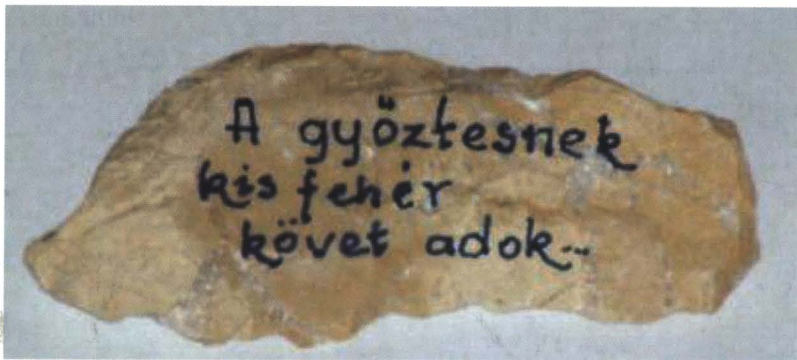 A győztesnek
kis fehér
követ adok...